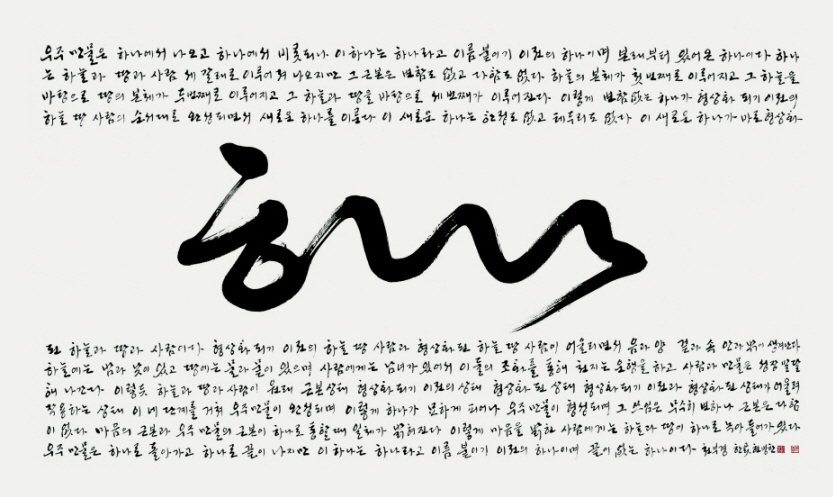 우주 만물은 하나에서 나오고 하나에서 비롯되나 이 하나는 하나라고 이름 붙이기 이전의 하나이며 본래부터 있어온 하나이다 하나
는 하늘과 땅과 사람 세 갈래로 이루어져 나오지만 그 근본은 변함도 없고 다함도 없다 하늘의 본체가 첫번째로 이루어지고 그 하늘을
바탕으로 땅의 본체가 두번째로 이루어지고 그 하늘과 땅을 바탕으로 세번째가 이루어진다 이렇게 변함없는 하나가 형상화 되기 이전의
하늘 땅 사람의 순서대로 완성되면서 새로운 하나를 이룬다 이 새로운 하나는 한정도 없고 테두리도 없다 이 새로운 하나가 바로 형상화
하나
된 하늘과 땅과 사람이다 형상화 되기 이전의 하늘 땅 사람과 형상화 된 하늘 땅 사람이 어울리면서 음과 양 겉과 속 안과 밖이 생겨난다
하늘에는 밤과 낮이 있고 땅에는 물과 뭍이 있으며 사람에게는 남녀가 있어서 이 둘의 조화를 통해 천지는 운행을 하고 사람과 만물은 성장 발달
해 나간다 이렇듯 하늘과 땅과 사람이 원래 근본상태 형상화 되기 이전의 상태 형상화 된 상태 형상화 되기 이전과 형상화 된 상태가 어울려
작용하는 상태 이 네 단계를 거쳐 우주만물이 완성되며 이렇게 하나가 묘하게 피어나 우주 만물이 형성되며 그 쓰임은 무수히 변하나 근본은 다함
이 없다 마음의 근본과 우주 만물의 근본이 하나로 통할 때 일체가 밝아진다 이렇게 마음을 밝힌 사람에게는 하늘과 땅이 하나로 녹아 들어가 있다
우주 만물은 하나로 돌아가고 하나로 끝이 나지만 이 하나는 하나라고 이름 붙이기 이전의 하나이며 끝이 없는 하나이다 천부경